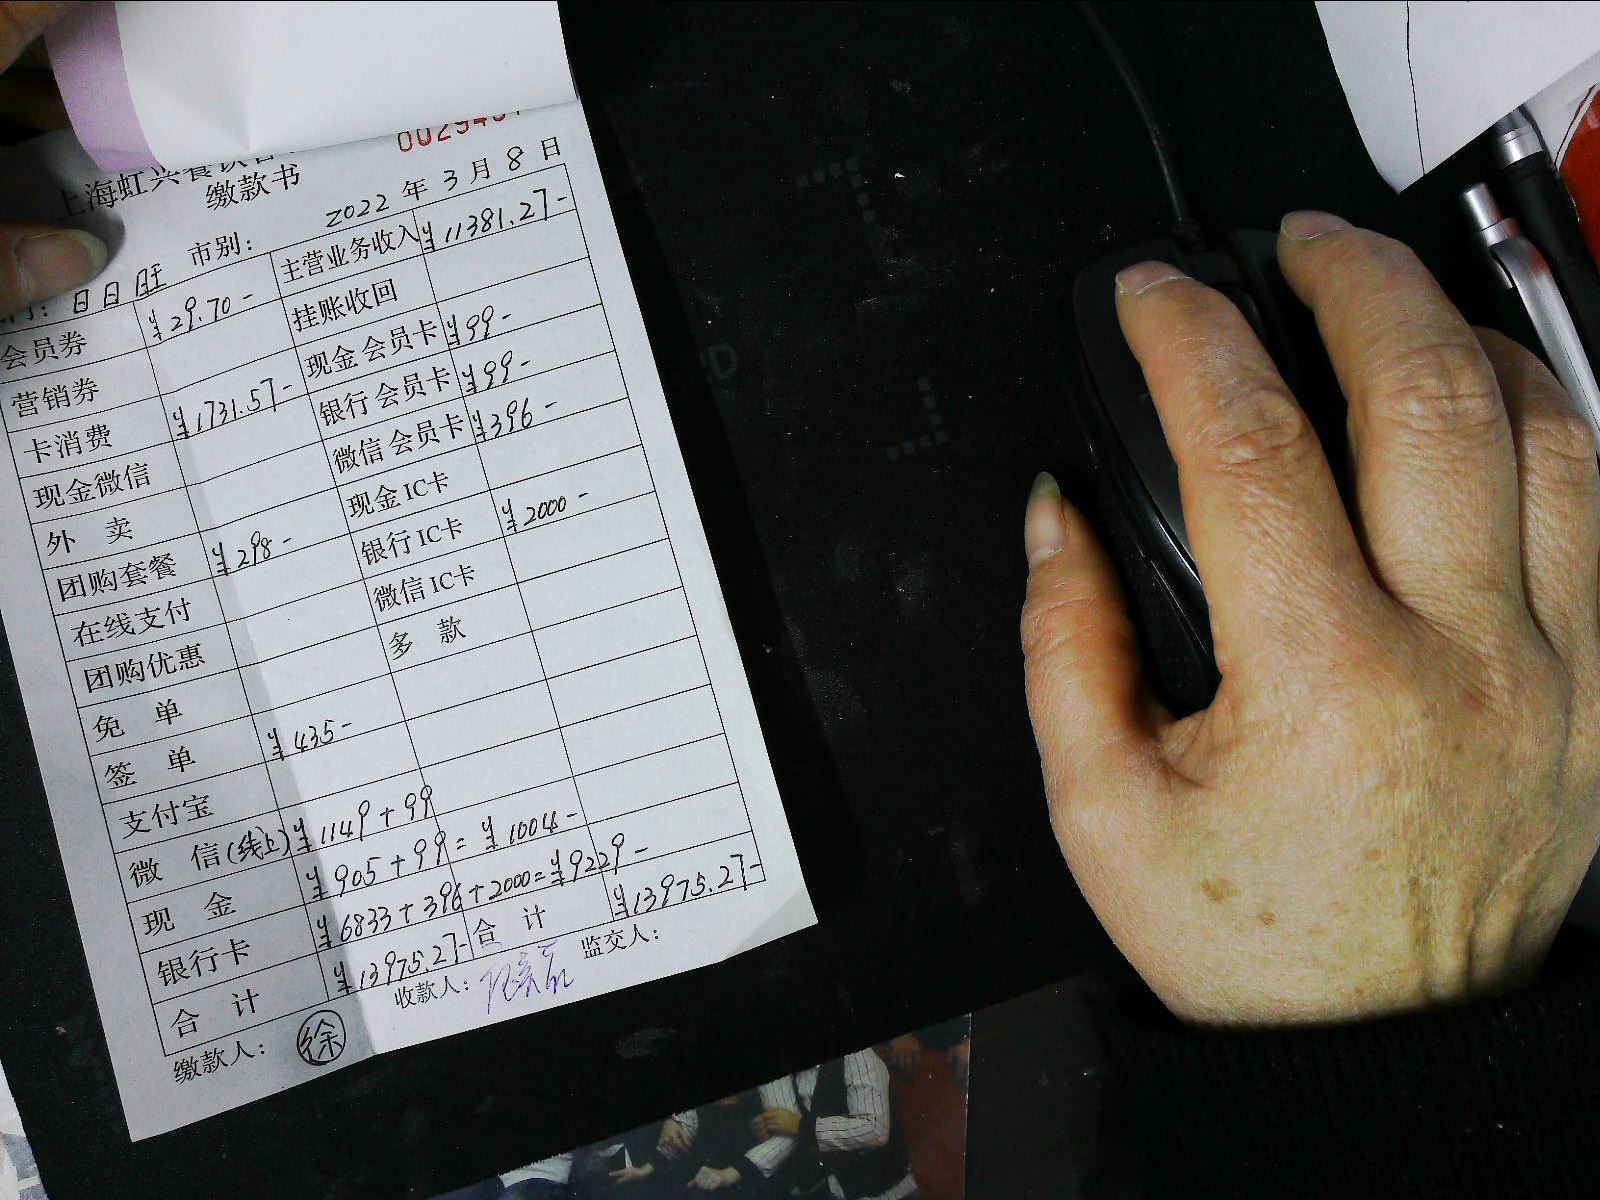 上海虹兴餐饮
缴款书
2022 年 3 月 8 日
市别：
日日旺
会员券 ¥29.70- 主营业务收入 ¥11381.27-
营销券 挂账收回
卡消费 ¥1731.57- 现金会员卡 ¥99-
现金微信 银行会员卡 ¥99-
外 卖 微信会员卡 ¥396-
团购套餐 ¥298- 现金IC卡
在线支付 银行IC卡 ¥2000-
团购优惠 微信IC卡
免 单 多 款
签 单 ¥435-
支付宝
微 信(线上) ¥1149+99
现 金 ¥905+99= ¥1004-
银行卡 ¥6833+396+2000=¥9229-
合 计 ¥13975.27- 合 计 ¥13975.27-
缴款人： 徐 收款人： 监交人：